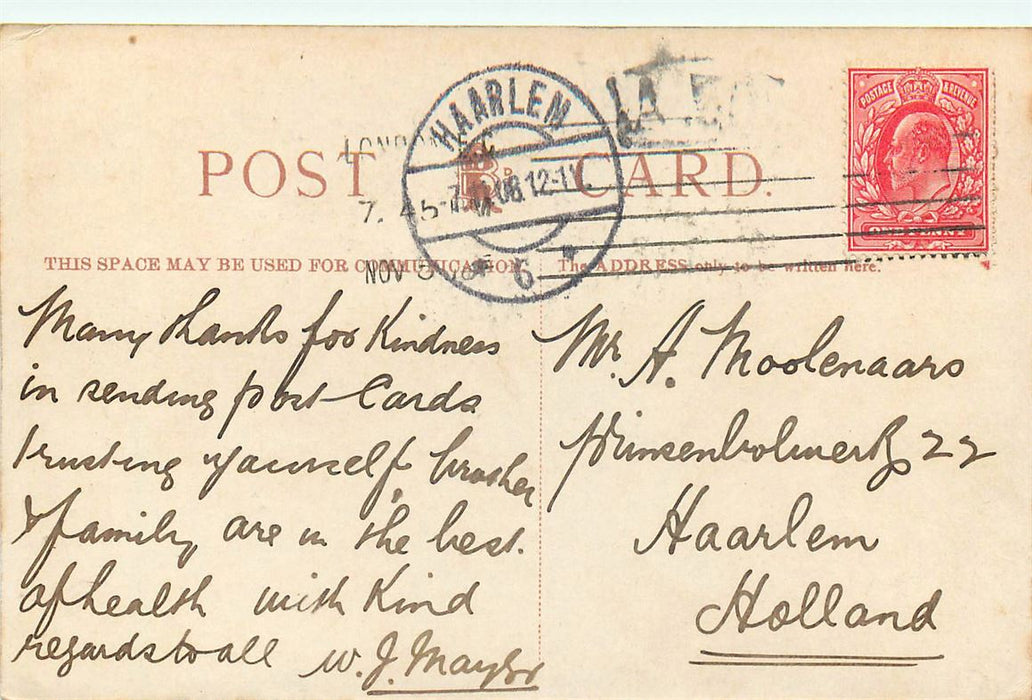 POST CARD.
THIS SPACE MAY BE USED FOR COMMUNICATION.
The ADDRESS only to be written here.
HAARLEM
08.12-1V.
6
LONDON
7. 45
NOV
POSTAGE & REVENUE
ONE PENNY
Many thanks for Kindness
in sending post Cards
trusting yourself, brother
& family are in the best.
of health with Kind
regards to all
W. J. Maylor
Mr. A. Moolenaars
Prinsenbolwerk 22
Haarlem
Holland